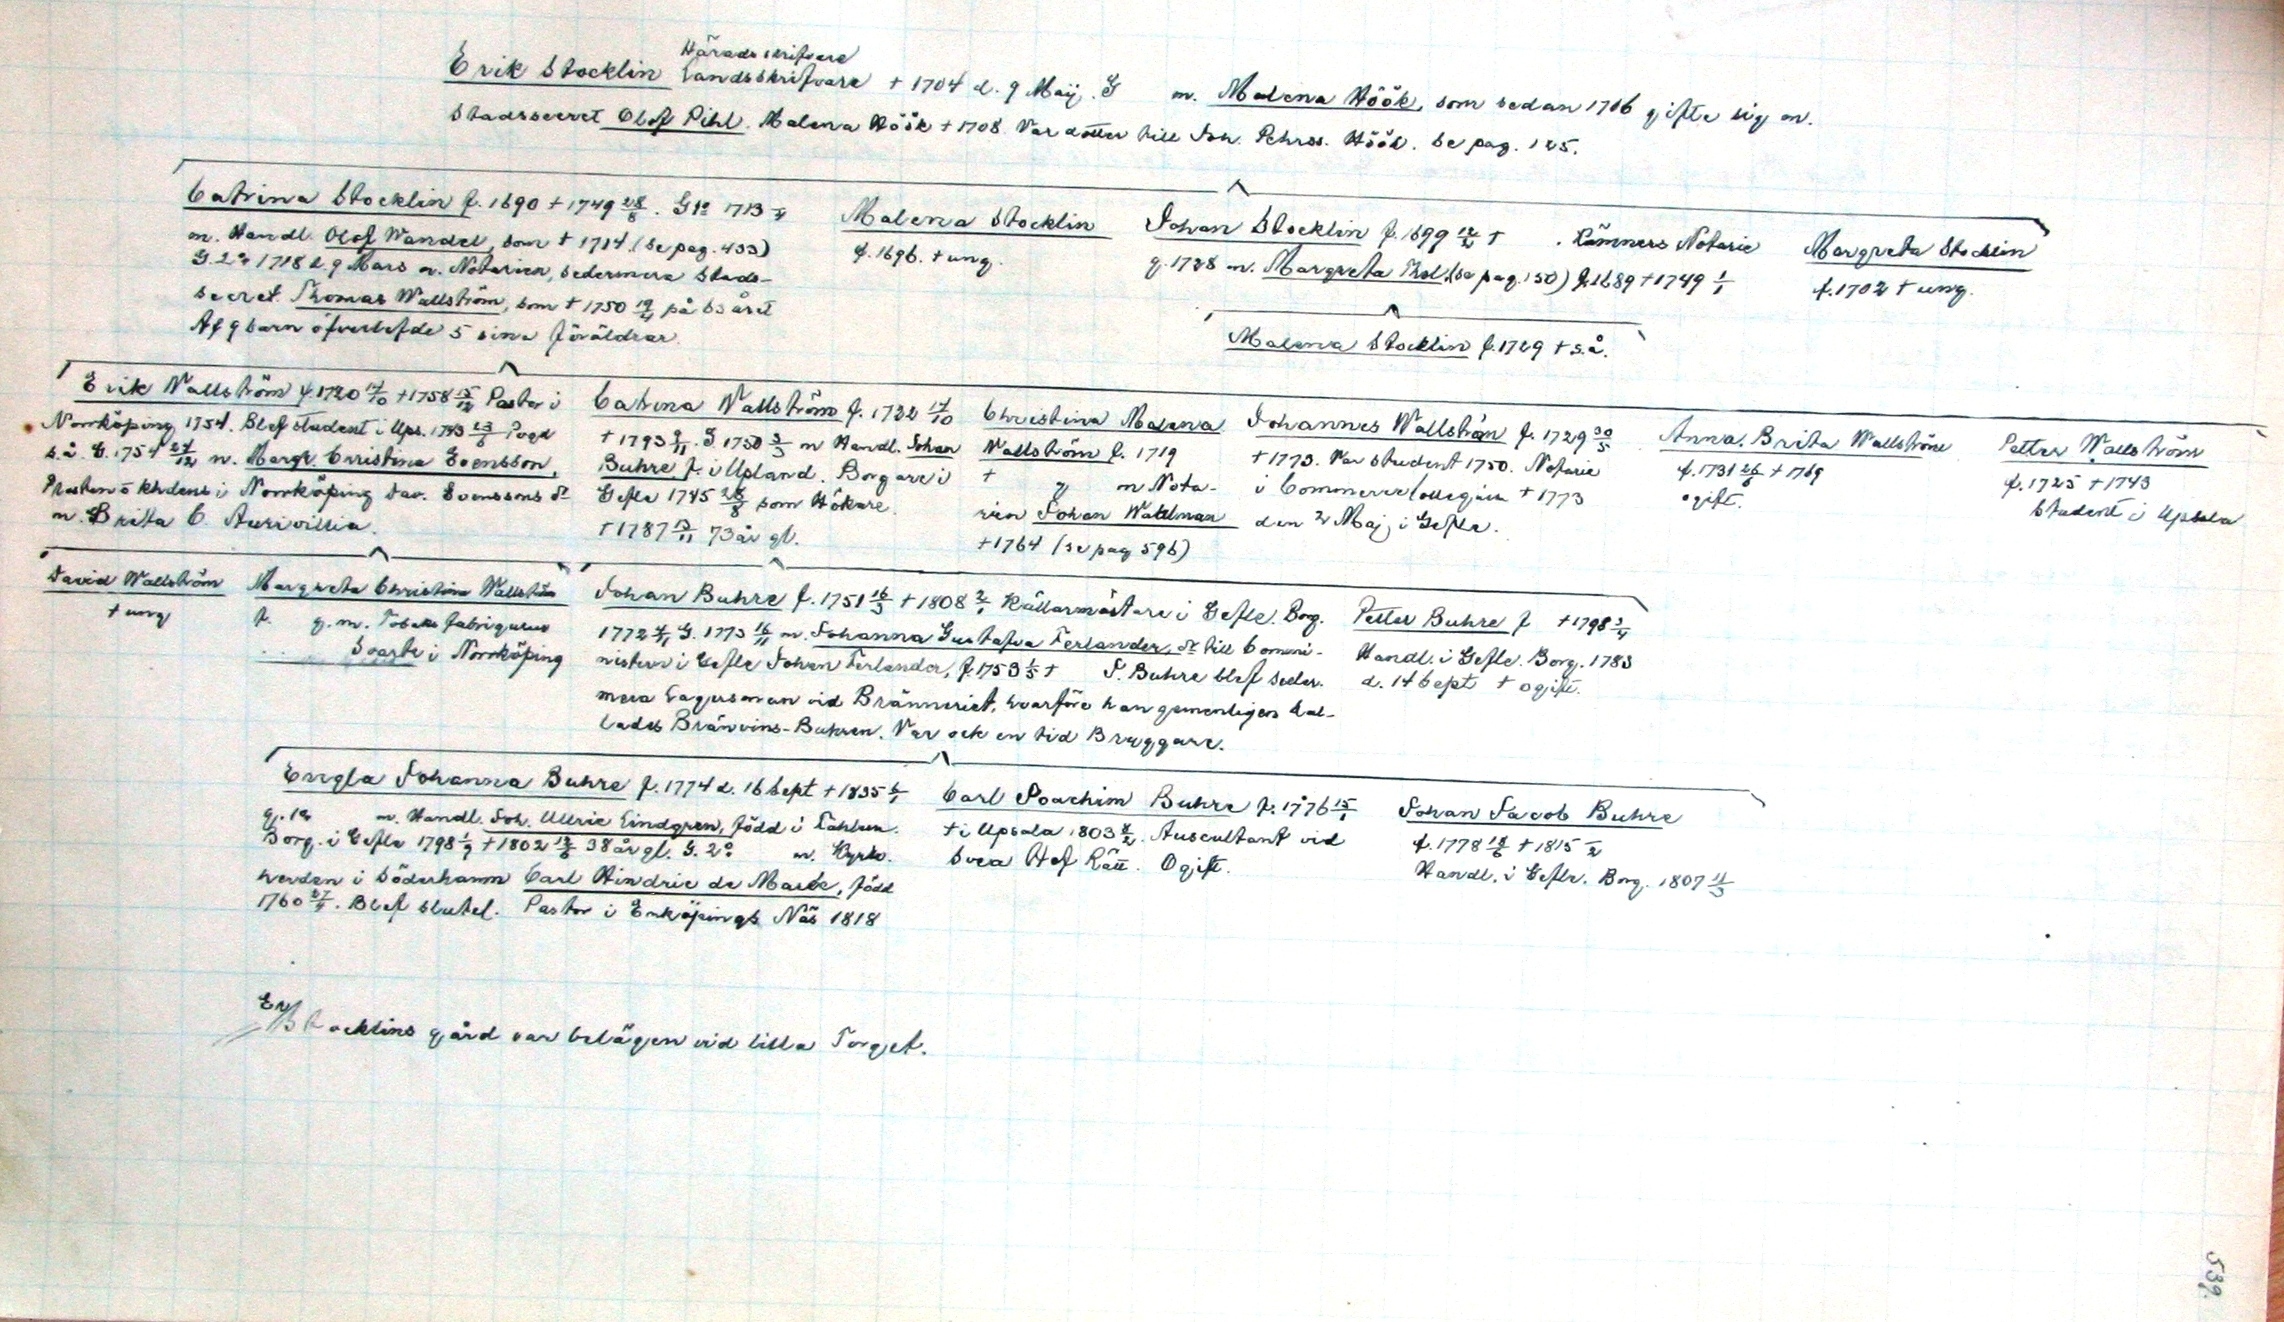 Häradsskrifvare
Erik Stocklin Landsskrifvare + 1704 d. 9 Maij. G m. Malena Höök, som sedan 1706 gifte sig m.
Stadssecret Olof Pihl. Malena Höök + 1708. Var dotter till Joh. Pehrss. Höök. Se pag. 125.
Catrina Stocklin f. 1690 + 1749 28/8. G 1o 1713
m. Handl. Olof Wandel, som + 1714 (se pag. 433)
G. 2o 1718 d. 9 Mars m. Notarien, sedermera Stads-
secret. Thomas Wallström, som + 1750 19/4 på 63 året
Af 9 barn öfverlefde 5 sina föräldrar.
Malena Stocklin
f. 1696. + ung.
Johan Stocklin f. 1699 12/2 + . Kämners Notarie
g. 1728 m. Margreta Thel. (se pag. 150) f. 1689 + 1749 1/1
Margreta Stocklin
f. 1702 + ung.
Malena Stocklin f. 1729 + s.å.
Erik Wallström f. 1720 17/10 + 1758 15/12 Pastor i
Norrköping 1754. Blef student i Ups. 1743
s.å. G. 1754 27/12 m. Margr. Christina Svensson,
Prosten o khdens i Norrköping Dav. Svenssons dr
m. Brita C. Aurivillia.
Catrina Wallström f. 1722 17/10
+ 1793 9/11. G 1750 3/3 m Handl. Johan
Buhre f. i Upland. Borgare i
Gefle 1745 28/8 som Hökare.
+ 1787 13/11 73 år gl.
Christina Malena
Wallström f. 1719
+ g m Nota-
rien Johan Wahlman
+ 1764 (se pag 596)
Johannes Wallström f. 1729 30/5
+ 1773. Var student 1750. Notarie
i Commerce Collegium + 1773
den 2 Maj i Gefle.
Anna. Brita Wallström
f. 1731 26/6 + 1769
ogift.
Petter Wallström
f. 1725 + 1743
Student i Upsala
David Wallström
+ ung
Margreta Christina Wallström
f. g. m. Tobaks fabriqueur
Svartz i Norrköping
Johan Buhre f. 1751 16/3 + 1808 2/1 Källarmästare i Gefle. Borg.
1772 4/11 G. 1773 16/11 m. Johanna Gustafva Ferlander, dr till Commi-
nistern i Gefle Johan Ferlander, f. 1753 1/5 + J. Buhre blef seder-
mera Lagerman vid Bränneriet, hvarföre han gemenligen kal-
lades Bränvins-Buhren. Var ock en tid Bryggare.
Petter Buhre f + 1798 3/4
Handl. i Gefle. Borg. 1783
d. 14 Sept + ogift.
Engla Johanna Buhre f. 1774 d. 16 Sept + 1835 6/1
g. 1o m. Handl. Joh. Ullric Lindgren, född i Fahlun.
Borg. i Gefle 1798 1/9 + 1802 38 år gl. G. 2o m. Kyrko-
herden i Söderhamn Carl Hindric de Maré, född
1760 27/7. Blef slutel. Pastor i Enköpings Näs 1818
Carl Joachim Buhre f. 1776 15/1
+ i Upsala 1803 8/2. Auscultant vid
Svea Hof Rätt. Ogift.
Johan Jacob Buhre
f. 1778 18/6 + 1815
Handl. i Gefle. Borg. 1807 11/3
Er. Stocklins gård var belägen vid lilla Torget.
539.